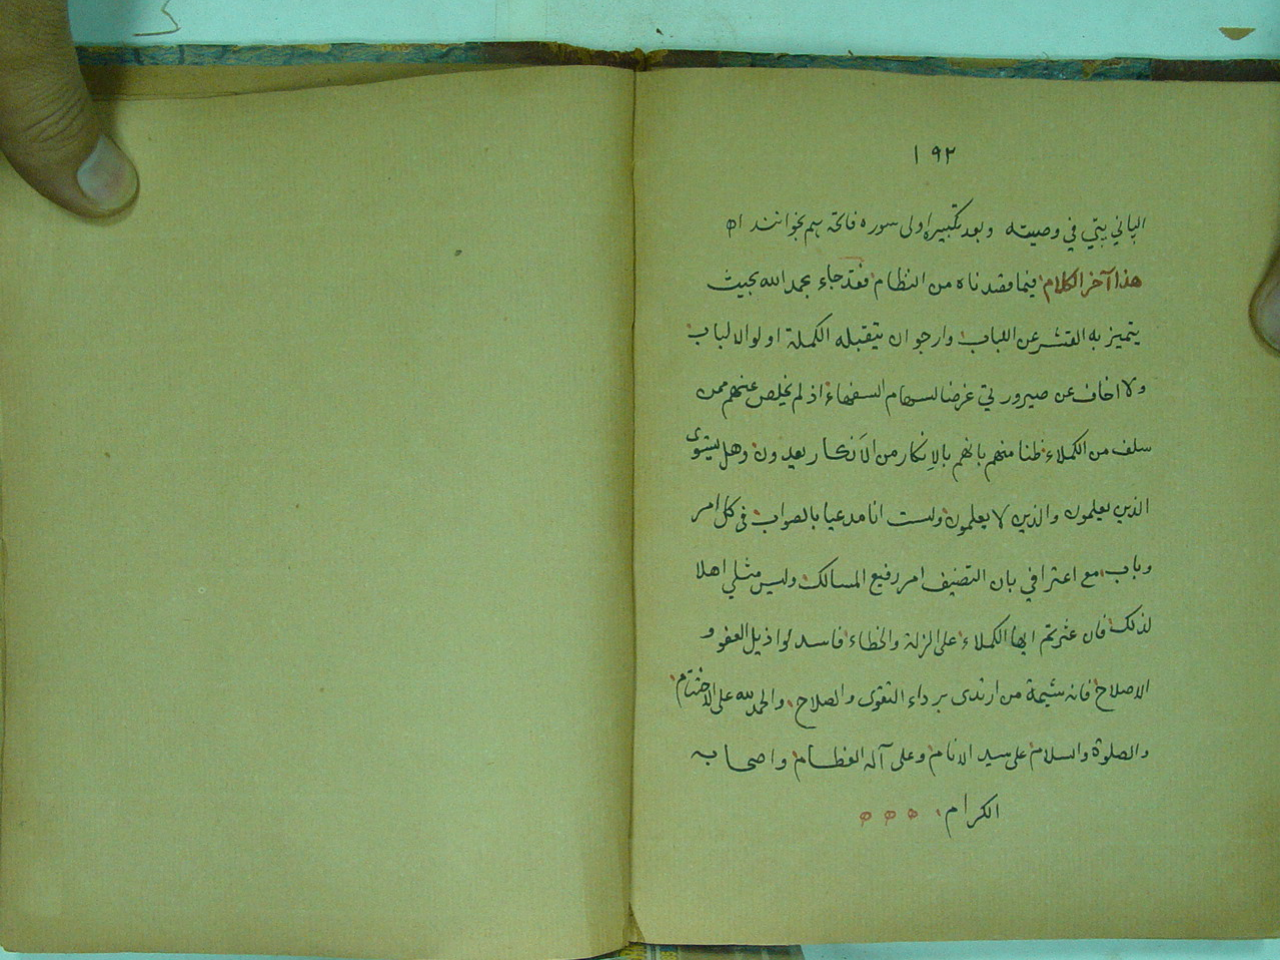 ١٩٢
الپاني پتي في وصيته وبعد تكبير اولى سوره فاتحه هم بخوانند اه
هذا آخر الكلام فيما قصدناه من النظام فقد جاء بحمد الله بحيث
يتميز به القشر عن اللباب وارجو ان يتقبله الكملة اولو الالباب
ولا اخاف عن صيرورتي غرضا لسهام السفهاء اذ لم يخلص عنهم ممن
سلف من الكملاء ظنا منهم بانهم بالإنكار من الأنكار يعدون وهل يستوى
الذين يعلمون والذين لا يعلمون ولست انا مدعيا بالصواب في كل امر
وباب مع اعترافي بان التصنيف امر رفيع المسالك وليس مثلي اهلا
لذلك فان عثرتم ايها الكملاء على الزلة والخطاء فاسدلوا ذيل العفو و
الاصلاح فانه شيمة من ارتدى برداء التقوى والصلاح والحمد لله على الاختتام
والصلوة والسلام على سيد الانام وعلى آله العظام واصحابه
الكرام